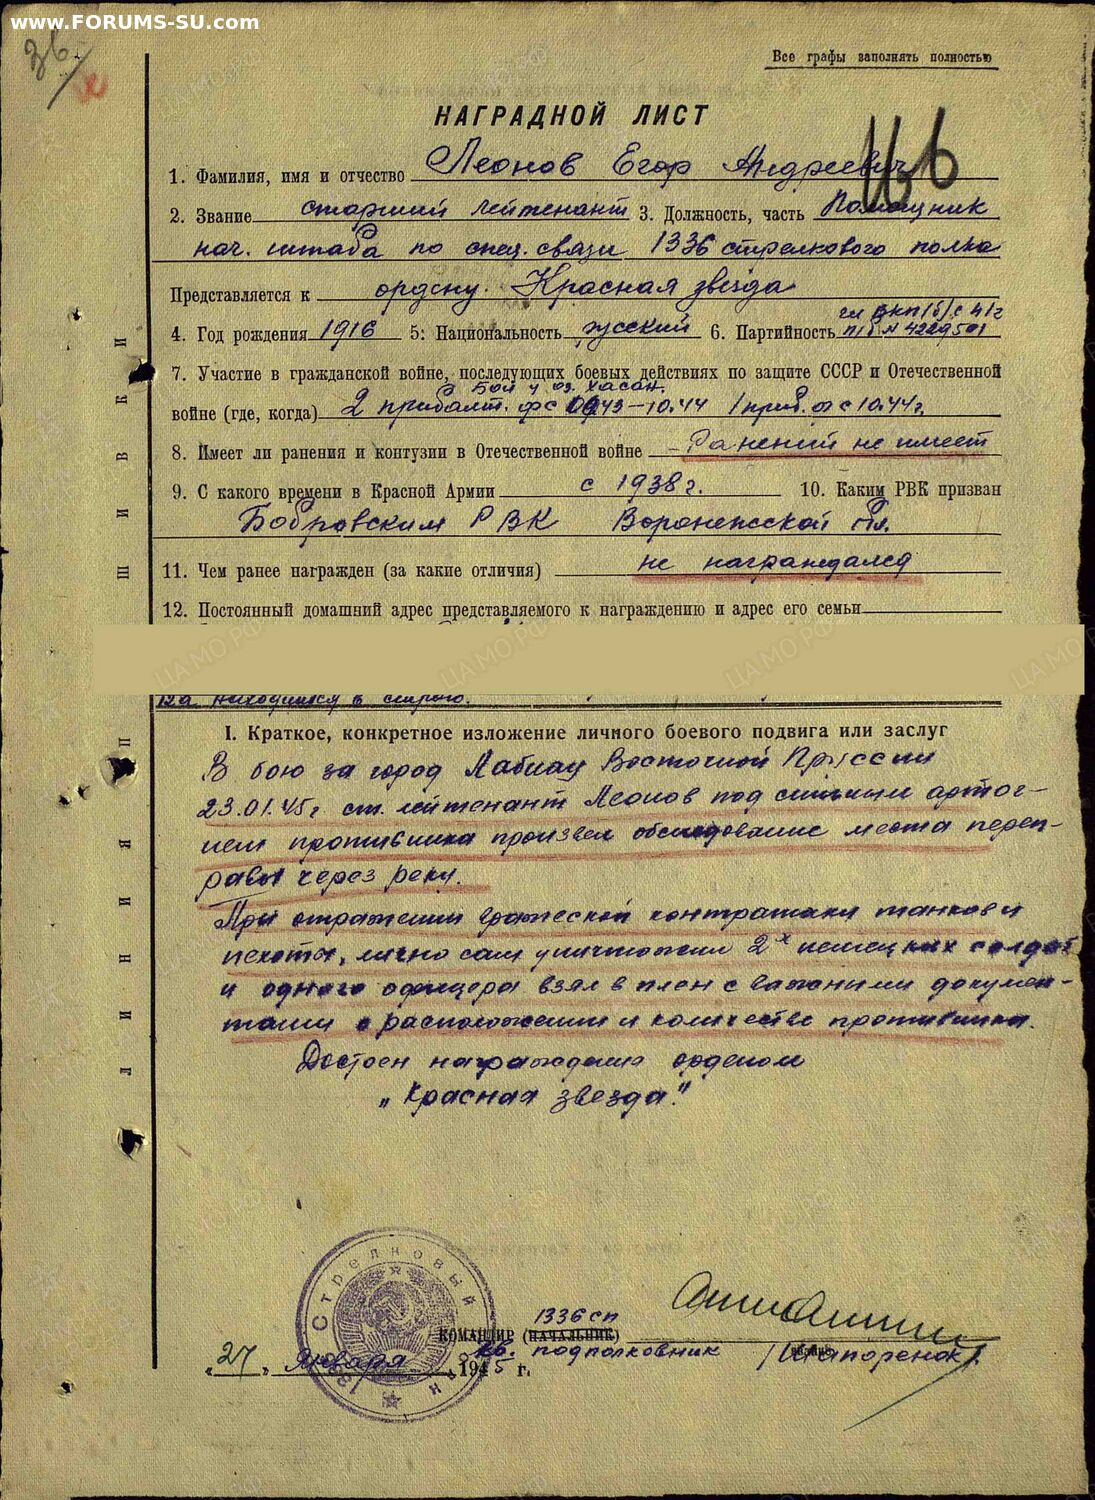 www.FORUMS-SU.com
36
Все графы заполнять полностью
НАГРАДНОЙ ЛИСТ
1. Фамилия, имя и отчество Леонов Егор Андреевич
2. Звание старший лейтенант 3. Должность, часть Помощник
нач. штаба по спец. связи 1336 стрелкового полка
Представляется к ордену Красная звезда
чл ВКП(б) с 41г
4. Год рождения 1916 5: Национальность русский 6. Партийность п/б № 4229501
7. Участие в гражданской войне, последующих боевых действиях по защите СССР и Отечественной
Бой у оз. Хасан.
войне (где, когда) 2 прибалт. ф с 43–10.44 1 приб. с 10.44г.
8. Имеет ли ранения и контузии в Отечественной войне – Ранений не имеет
9. С какого времени в Красной Армии с 1938г. 10. Каким РВК призван
Бобровским РВК Воронежской обл.
11. Чем ранее награжден (за какие отличия) не награждался
12. Постоянный домашний адрес представляемого к награждению и адрес его семьи
ЛИНИЯ ПОДШИВКИ
I. Краткое, конкретное изложение личного боевого подвига или заслуг
В бою за город Лабиау Восточной Пруссии
23.01.45г ст. лейтенант Леонов под сильным артог-
нем противника произвел обследование места переп-
равы через реку.
При отражении вражеской контратаки танков и
пехоты, лично сам уничтожил 2х немецких солдат
и одного офицера взял в плен с важными докумен-
тами о расположении и количестве противника.
Достоен награждения орденом
„Красная звезда."
Стрелковый
1336 сп
КОМАНДИР (НАЧАЛЬНИК)
подполковник /Шапоренок/
„27" Января 1945 г.